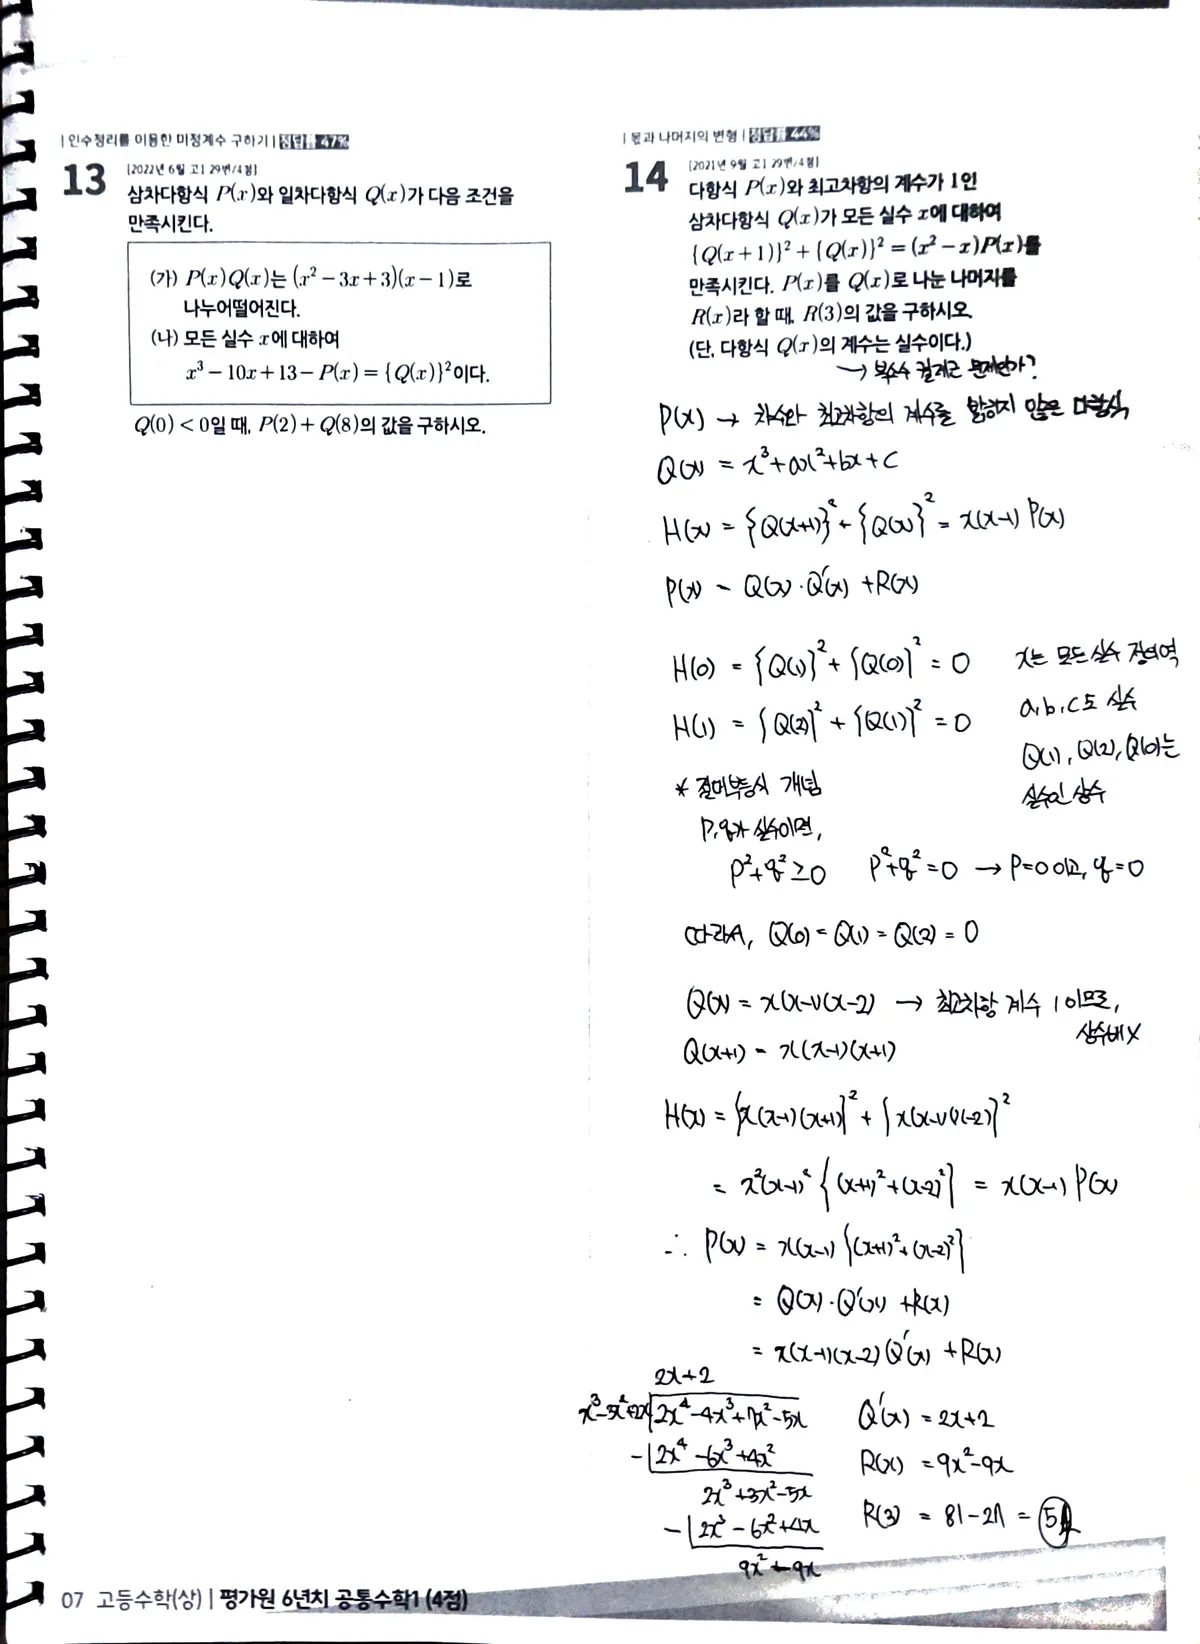 | 인수정리를 이용한 미정계수 구하기 | 정답률 47%
13 [2022년 6월 고1 29번/4점]
삼차다항식 P(x)와 일차다항식 Q(x)가 다음 조건을
만족시킨다.
(가) P(x)Q(x)는 (x² − 3x + 3)(x − 1)로
나누어떨어진다.
(나) 모든 실수 x에 대하여
x³ − 10x + 13 − P(x) = {Q(x)}²이다.
Q(0) < 0일 때, P(2) + Q(8)의 값을 구하시오.
| 몫과 나머지의 변형 | 정답률 44%
14 [2021년 9월 고1 29번/4점]
다항식 P(x)와 최고차항의 계수가 1인
삼차다항식 Q(x)가 모든 실수 x에 대하여
{Q(x+1)}² + {Q(x)}² = (x² − x)P(x)를
만족시킨다. P(x)를 Q(x)로 나눈 나머지를
R(x)라 할 때, R(3)의 값을 구하시오.
(단, 다항식 Q(x)의 계수는 실수이다.)
→ 복소수 켤레근 문제인가?
P(x) → 차수와 최고차항의 계수를 밝히지 않은 다항식
Q(x) = x³+ax²+bx+c
H(x) = {Q(x+1)}² + {Q(x)}² = x(x-1) P(x)
P(x) = Q(x)·Q'(x) + R(x)
H(0) = {Q(1)}² + {Q(0)}² = 0 x는 모든 실수 정의역
H(1) = {Q(2)}² + {Q(1)}² = 0 a, b, c도 실수
Q(1), Q(2), Q(0)는
실수인 상수
* 절대부등식 개념
p, q가 실수이면,
p²+q² ≥ 0 p²+q² = 0 → p=0이고, q=0
따라서, Q(0) = Q(1) = Q(2) = 0
Q(x) = x(x-1)(x-2) → 최고차항 계수 1이므로,
상수배 X
Q(x+1) = x(x-1)(x+1)
H(x) = {x(x-1)(x+1)}² + {x(x-1)(x-2)}²
= x²(x-1)² {(x+1)²+(x-2)²} = x(x-1) P(x)
∴ P(x) = x(x-1) {(x+1)²+(x-2)²}
= Q(x)·Q'(x) + R(x)
= x(x-1)(x-2) Q'(x) + R(x)
2x+2
x³-3x²+2x 2x⁴-4x³+7x²-5x
- 2x⁴-6x³+4x²
2x³+3x²-5x
- 2x³-6x²+4x
9x²-9x
Q'(x) = 2x+2
R(x) = 9x²-9x
R(3) = 81-27 = 54
07 고등수학(상) | 평가원 6년치 공통수학1 (4점)